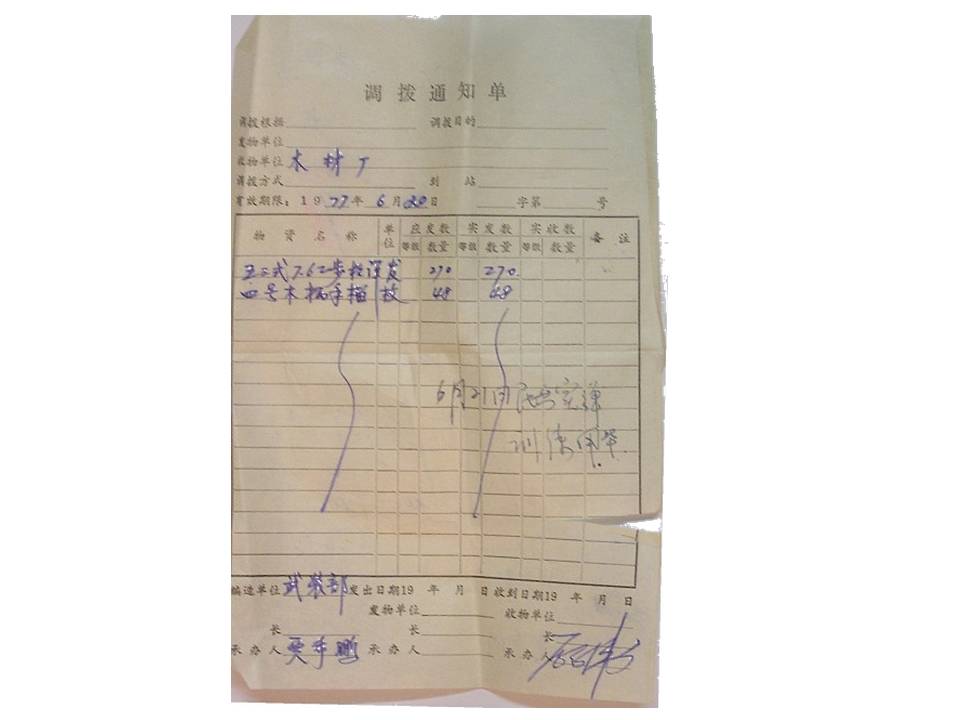 调拨通知单
调拨根据 调拨目的
发物单位
收物单位 木材厂
调拨方式 到 站
有效期限：1977年6月20日 字第 号
物资名称 单位 应发数 实发数 实收数 备注
等级 数量 等级 数量 等级 数量
五三式7.62步枪弹 发 270 270
四号木柄手榴 枚 48 48
6月21日民兵实弹
训练用毕.
编造单位 武装部 发出日期19 年 月 日 收到日期19 年 月 日
发物单位 收物单位
长 长 长
承办人 承办人 承办人